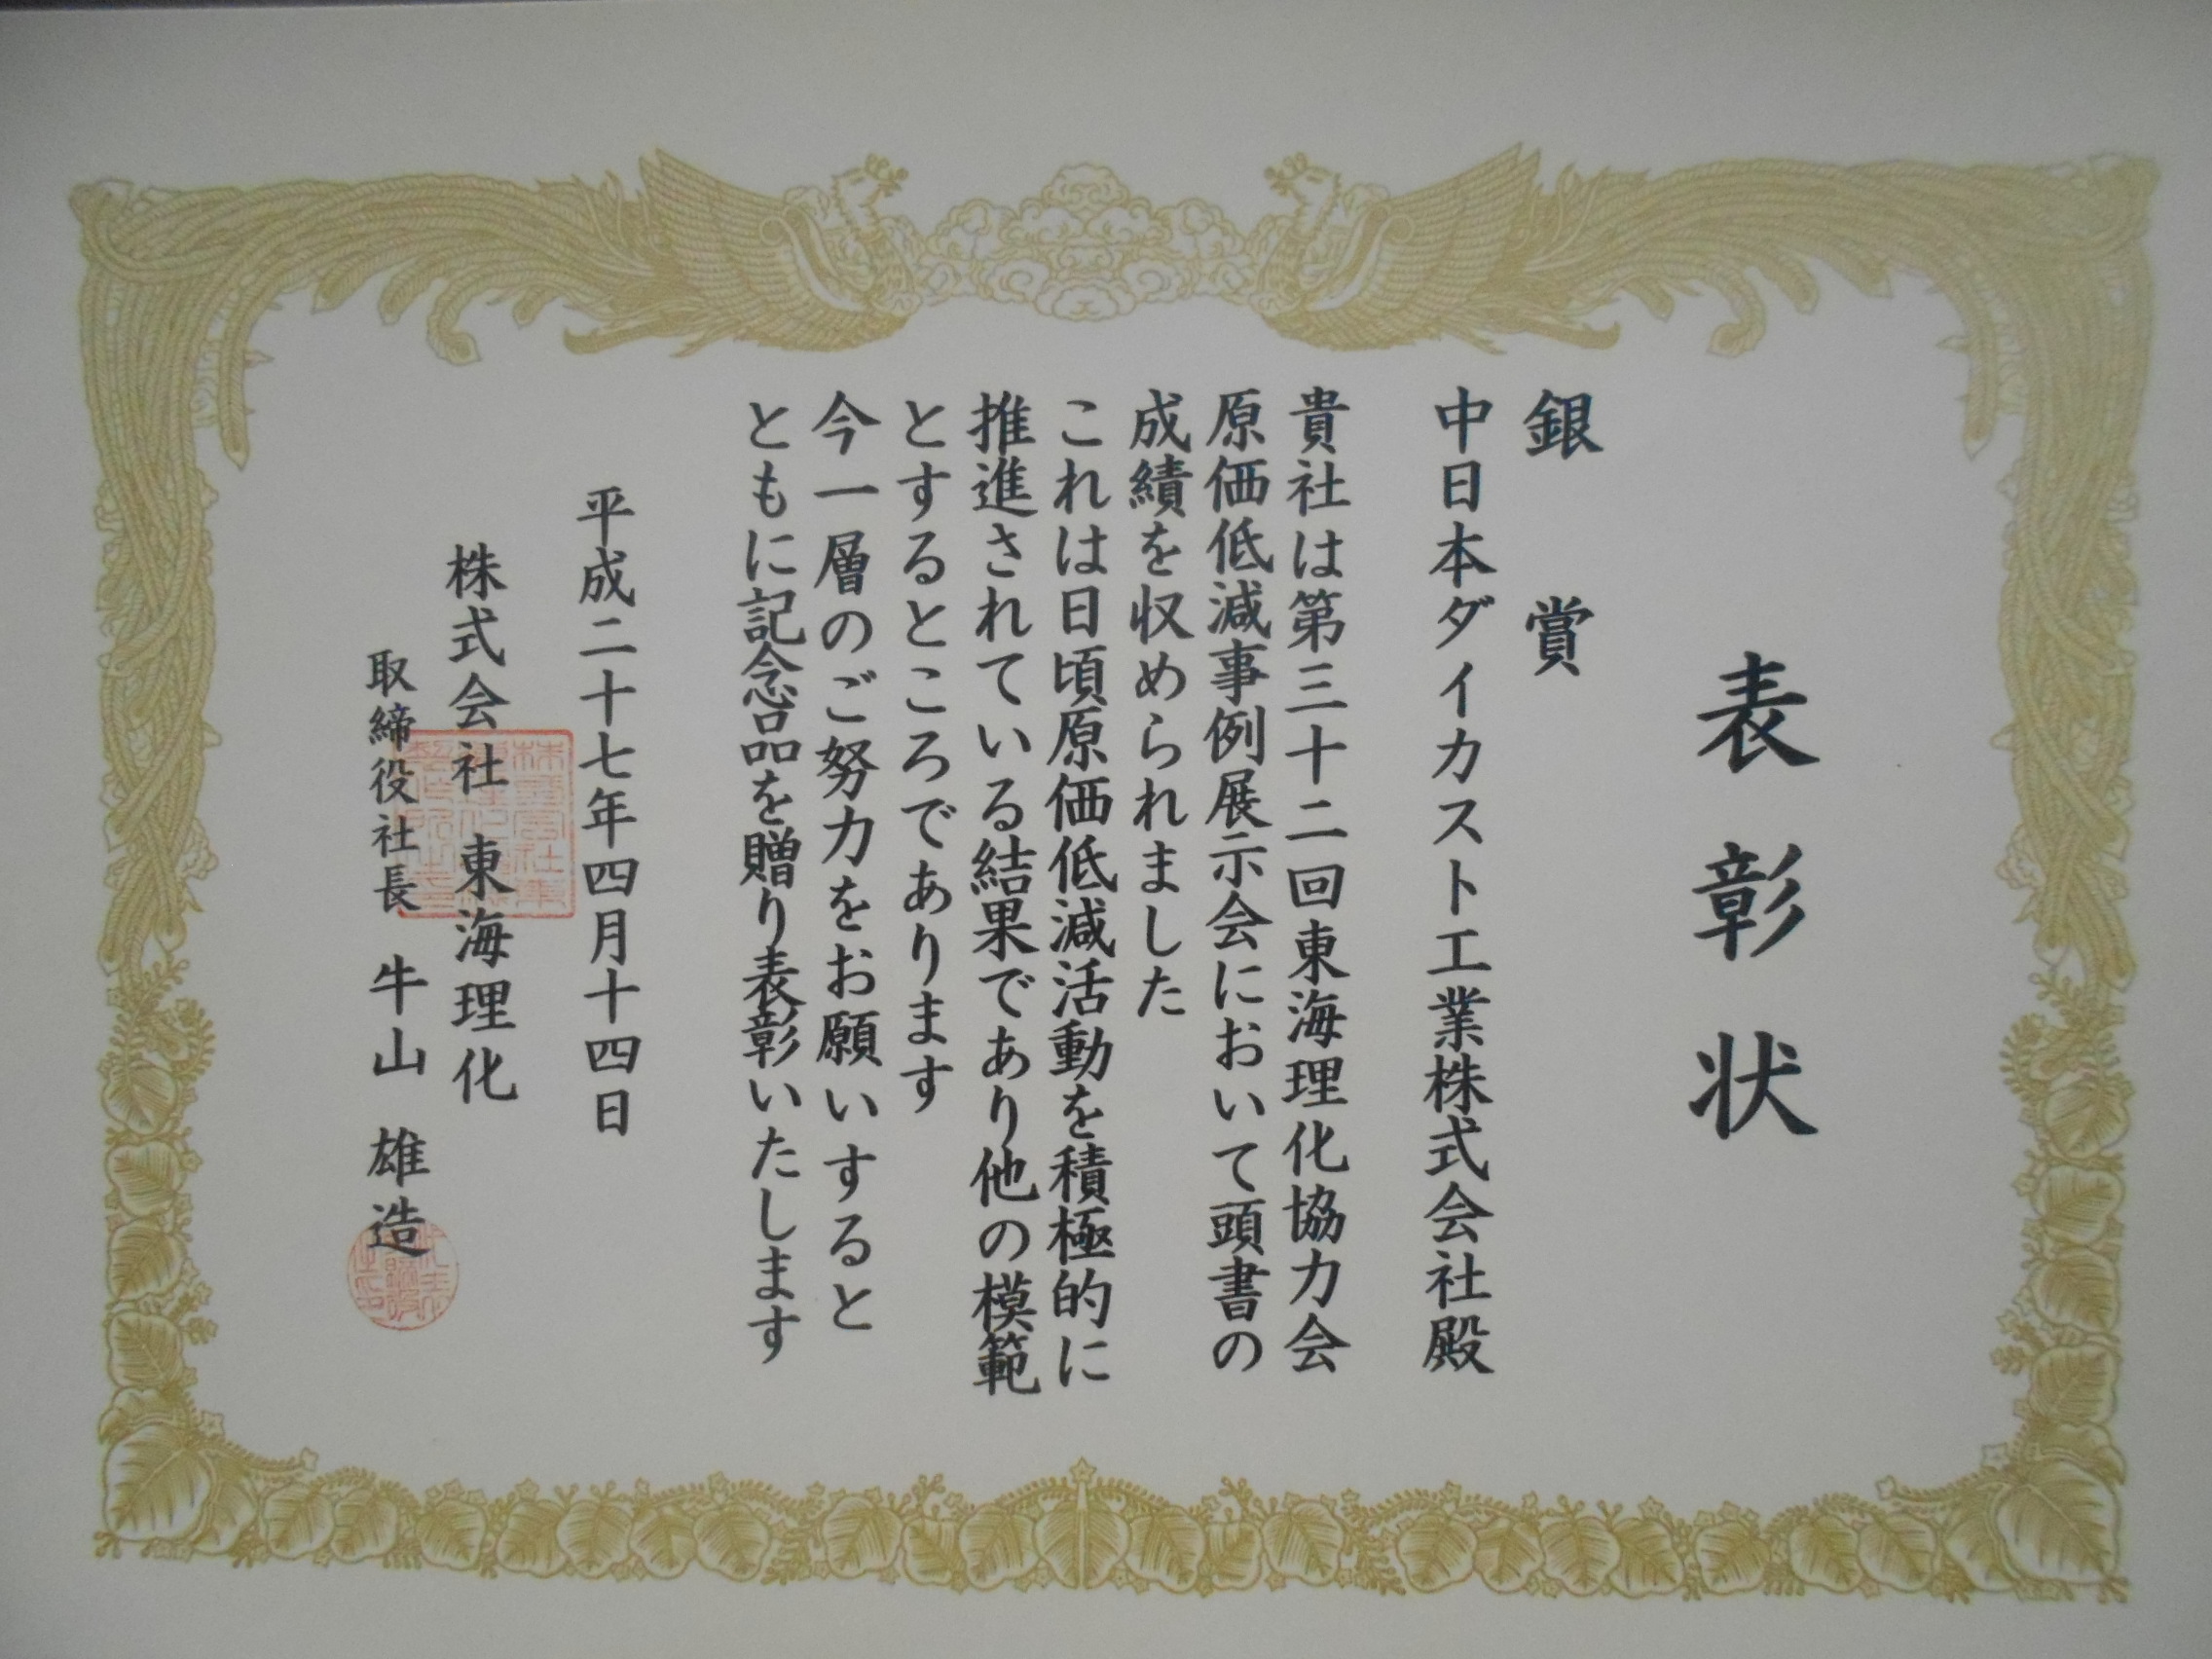 表彰状
銀賞
中日本ダイカスト工業株式会社殿
貴社は第三十二回東海理化協力会
原価低減事例展示会において頭書の
成績を収められました
これは日頃原価低減活動を積極的に
推進されている結果であり他の模範
とするところであります
今一層のご努力をお願いすると
ともに記念品を贈り表彰いたします
平成二十七年四月十四日
株式会社 東海理化
取締役社長 牛山 雄造